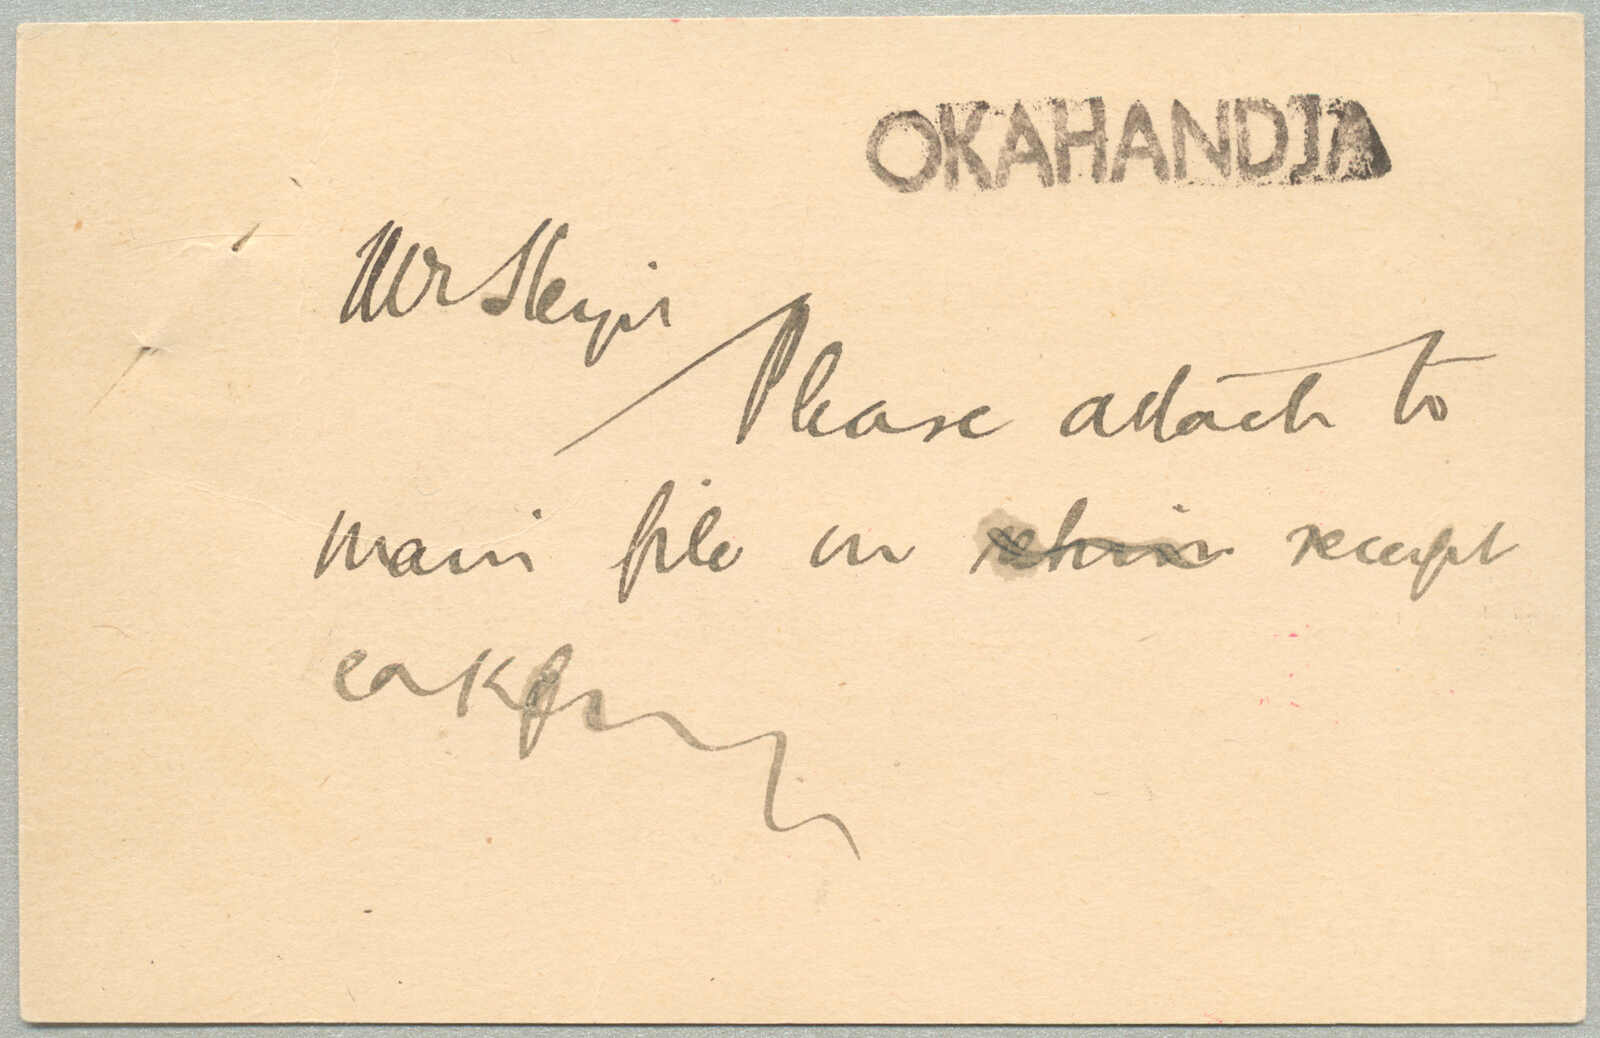 OKAHANDJA
Mr
Please attach to
main file on receipt